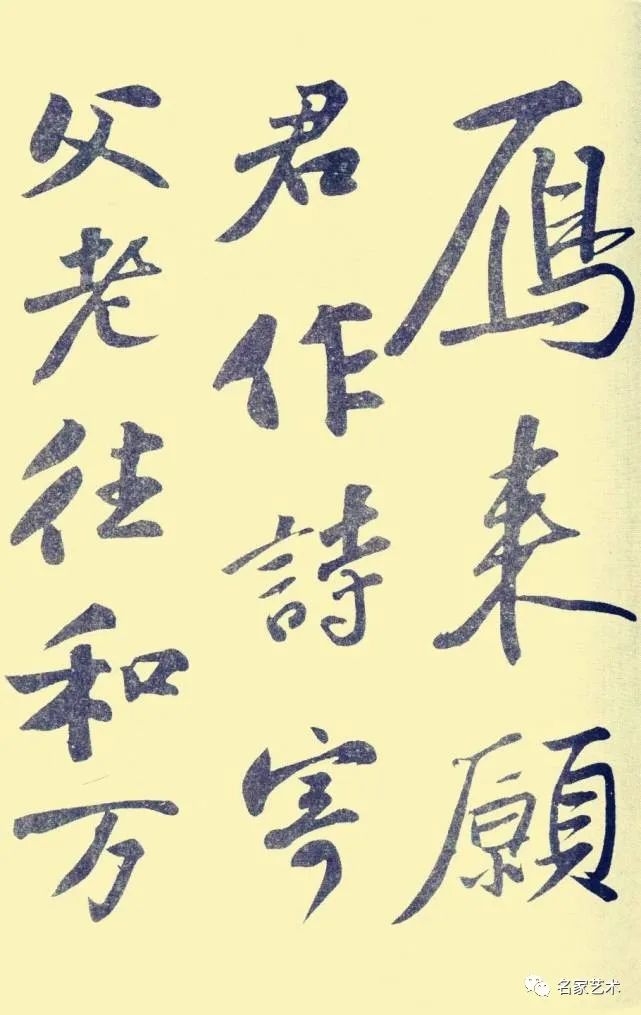 鴈来願
君作詩寄
父老往和万
名家艺术